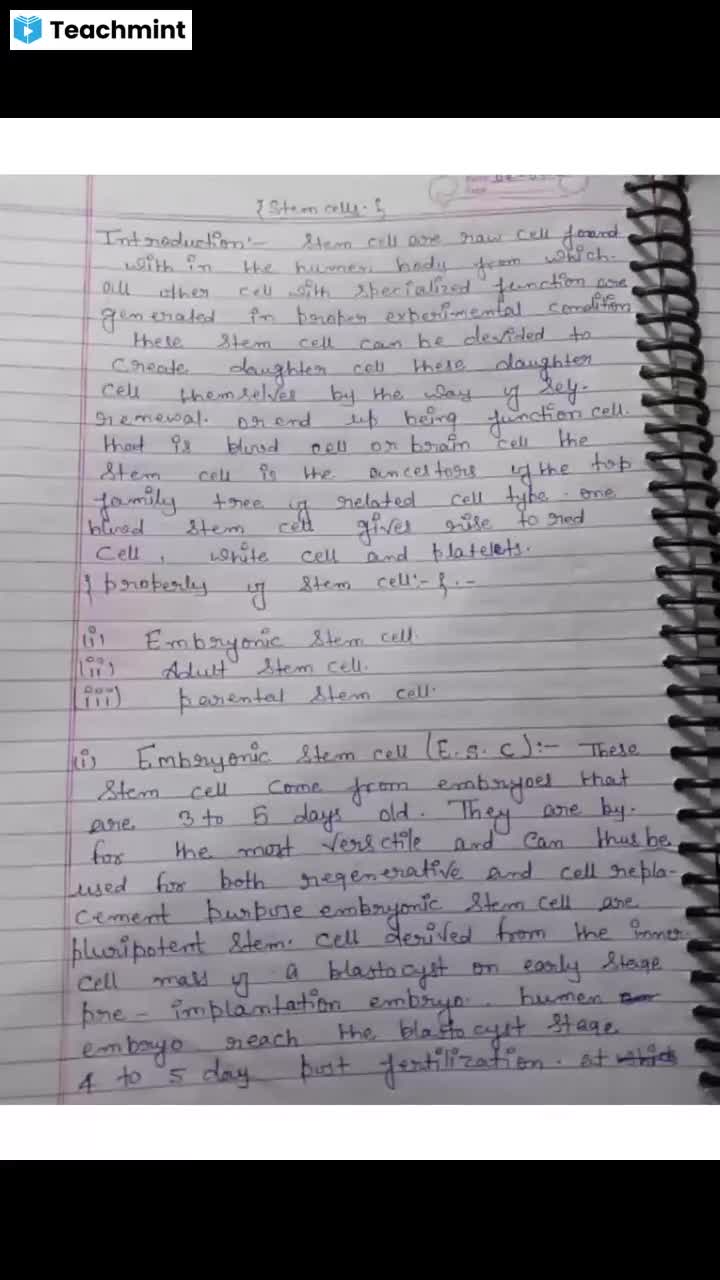 Teachmint
{ Stem cells. }
Introduction:- Stem cell are raw cell found
with in the humen body from which.
all other cell with specialized function are
generated in proper experimental condition
these stem cell can be devided to
create daughter cell these daughter
cell themselves by the way of self-
renewal. or end up being function cell.
that is blood cell or brain cell the
stem cell is the ancestors of the top
family tree of related cell type. one
blood stem cell gives rise to red
cell, white cell and platelets.
} properly of stem cell:- } .-
(i) Embryonic stem cell.
(ii) Adult stem cell.
(iii) parental stem cell.
(i) Embryonic stem cell (E.S.C):- These
stem cell come from embryoes that
are 3 to 5 days old. They are by.
for the most versctile and can thus be
used for both regenerative and cell repla-
cement purpose embryonic stem cell are
pluripotent stem. cell derived from the inner
cell mass of a blastocyst on early stage
pre-implantation embryo. humen
embryo reach the blastocyst stage
4 to 5 day post fertilization. at which